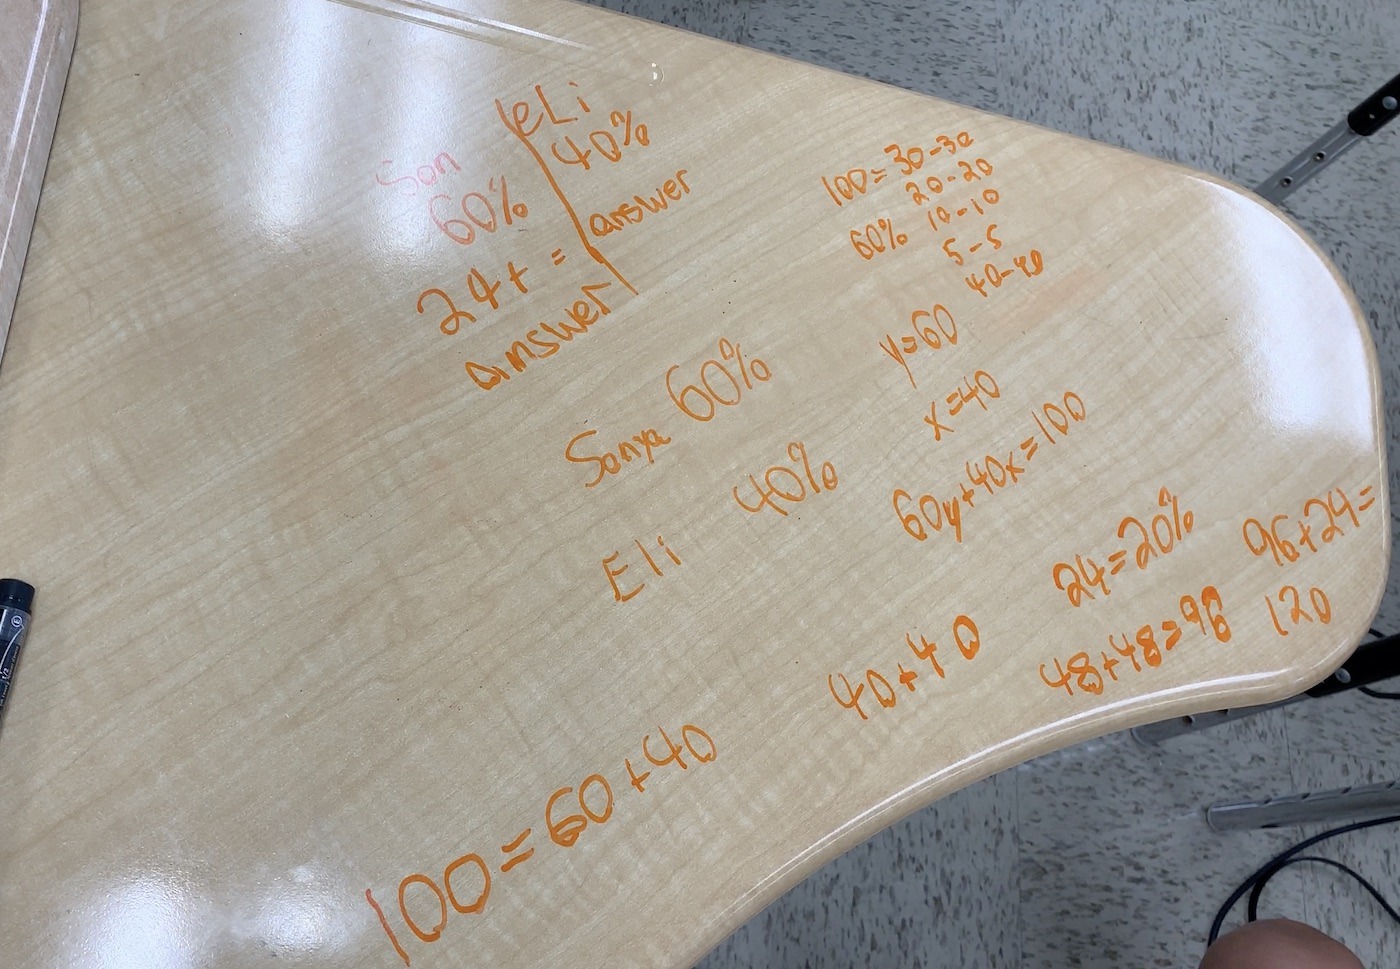 Son
60%
24+ =
answer
eLi
40%
answer
100= 30-30
20-20
60% 10-10
5-5
40-40
Sonya 60%
Eli 40%
y=60
x=40
60y+40x=100
40+40
24=20%
48+48=96
96+24=
120
100=60+40